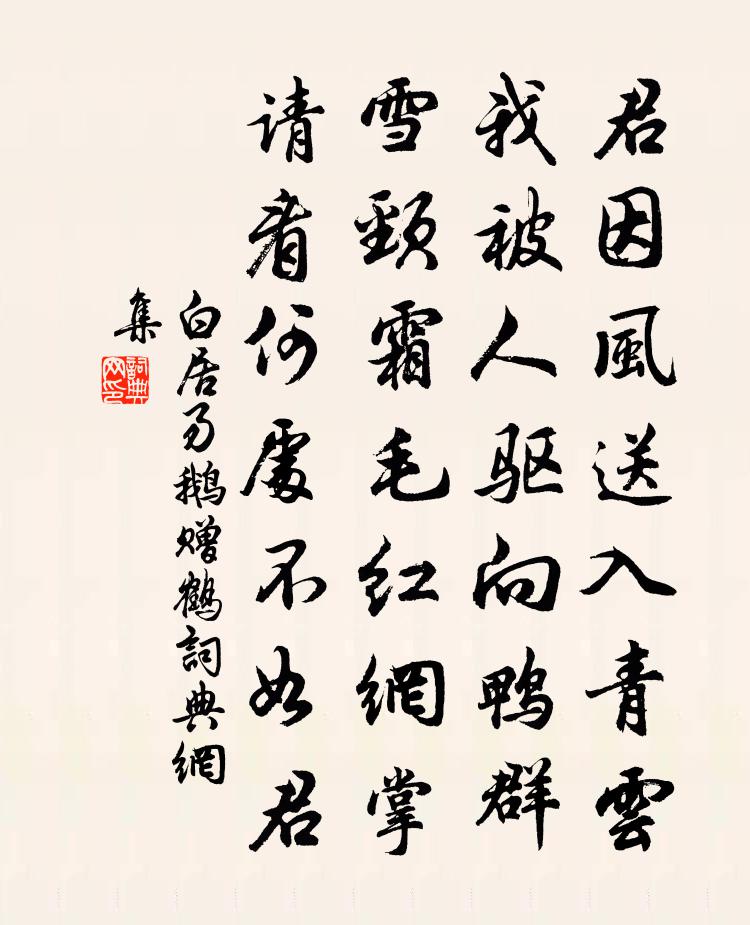 君因風送入青雲
我被人驱向鸭群
雪頸霜毛红網掌
请看何處不如君
白居易鹅赠鹤詞典網
集
詞典
网印